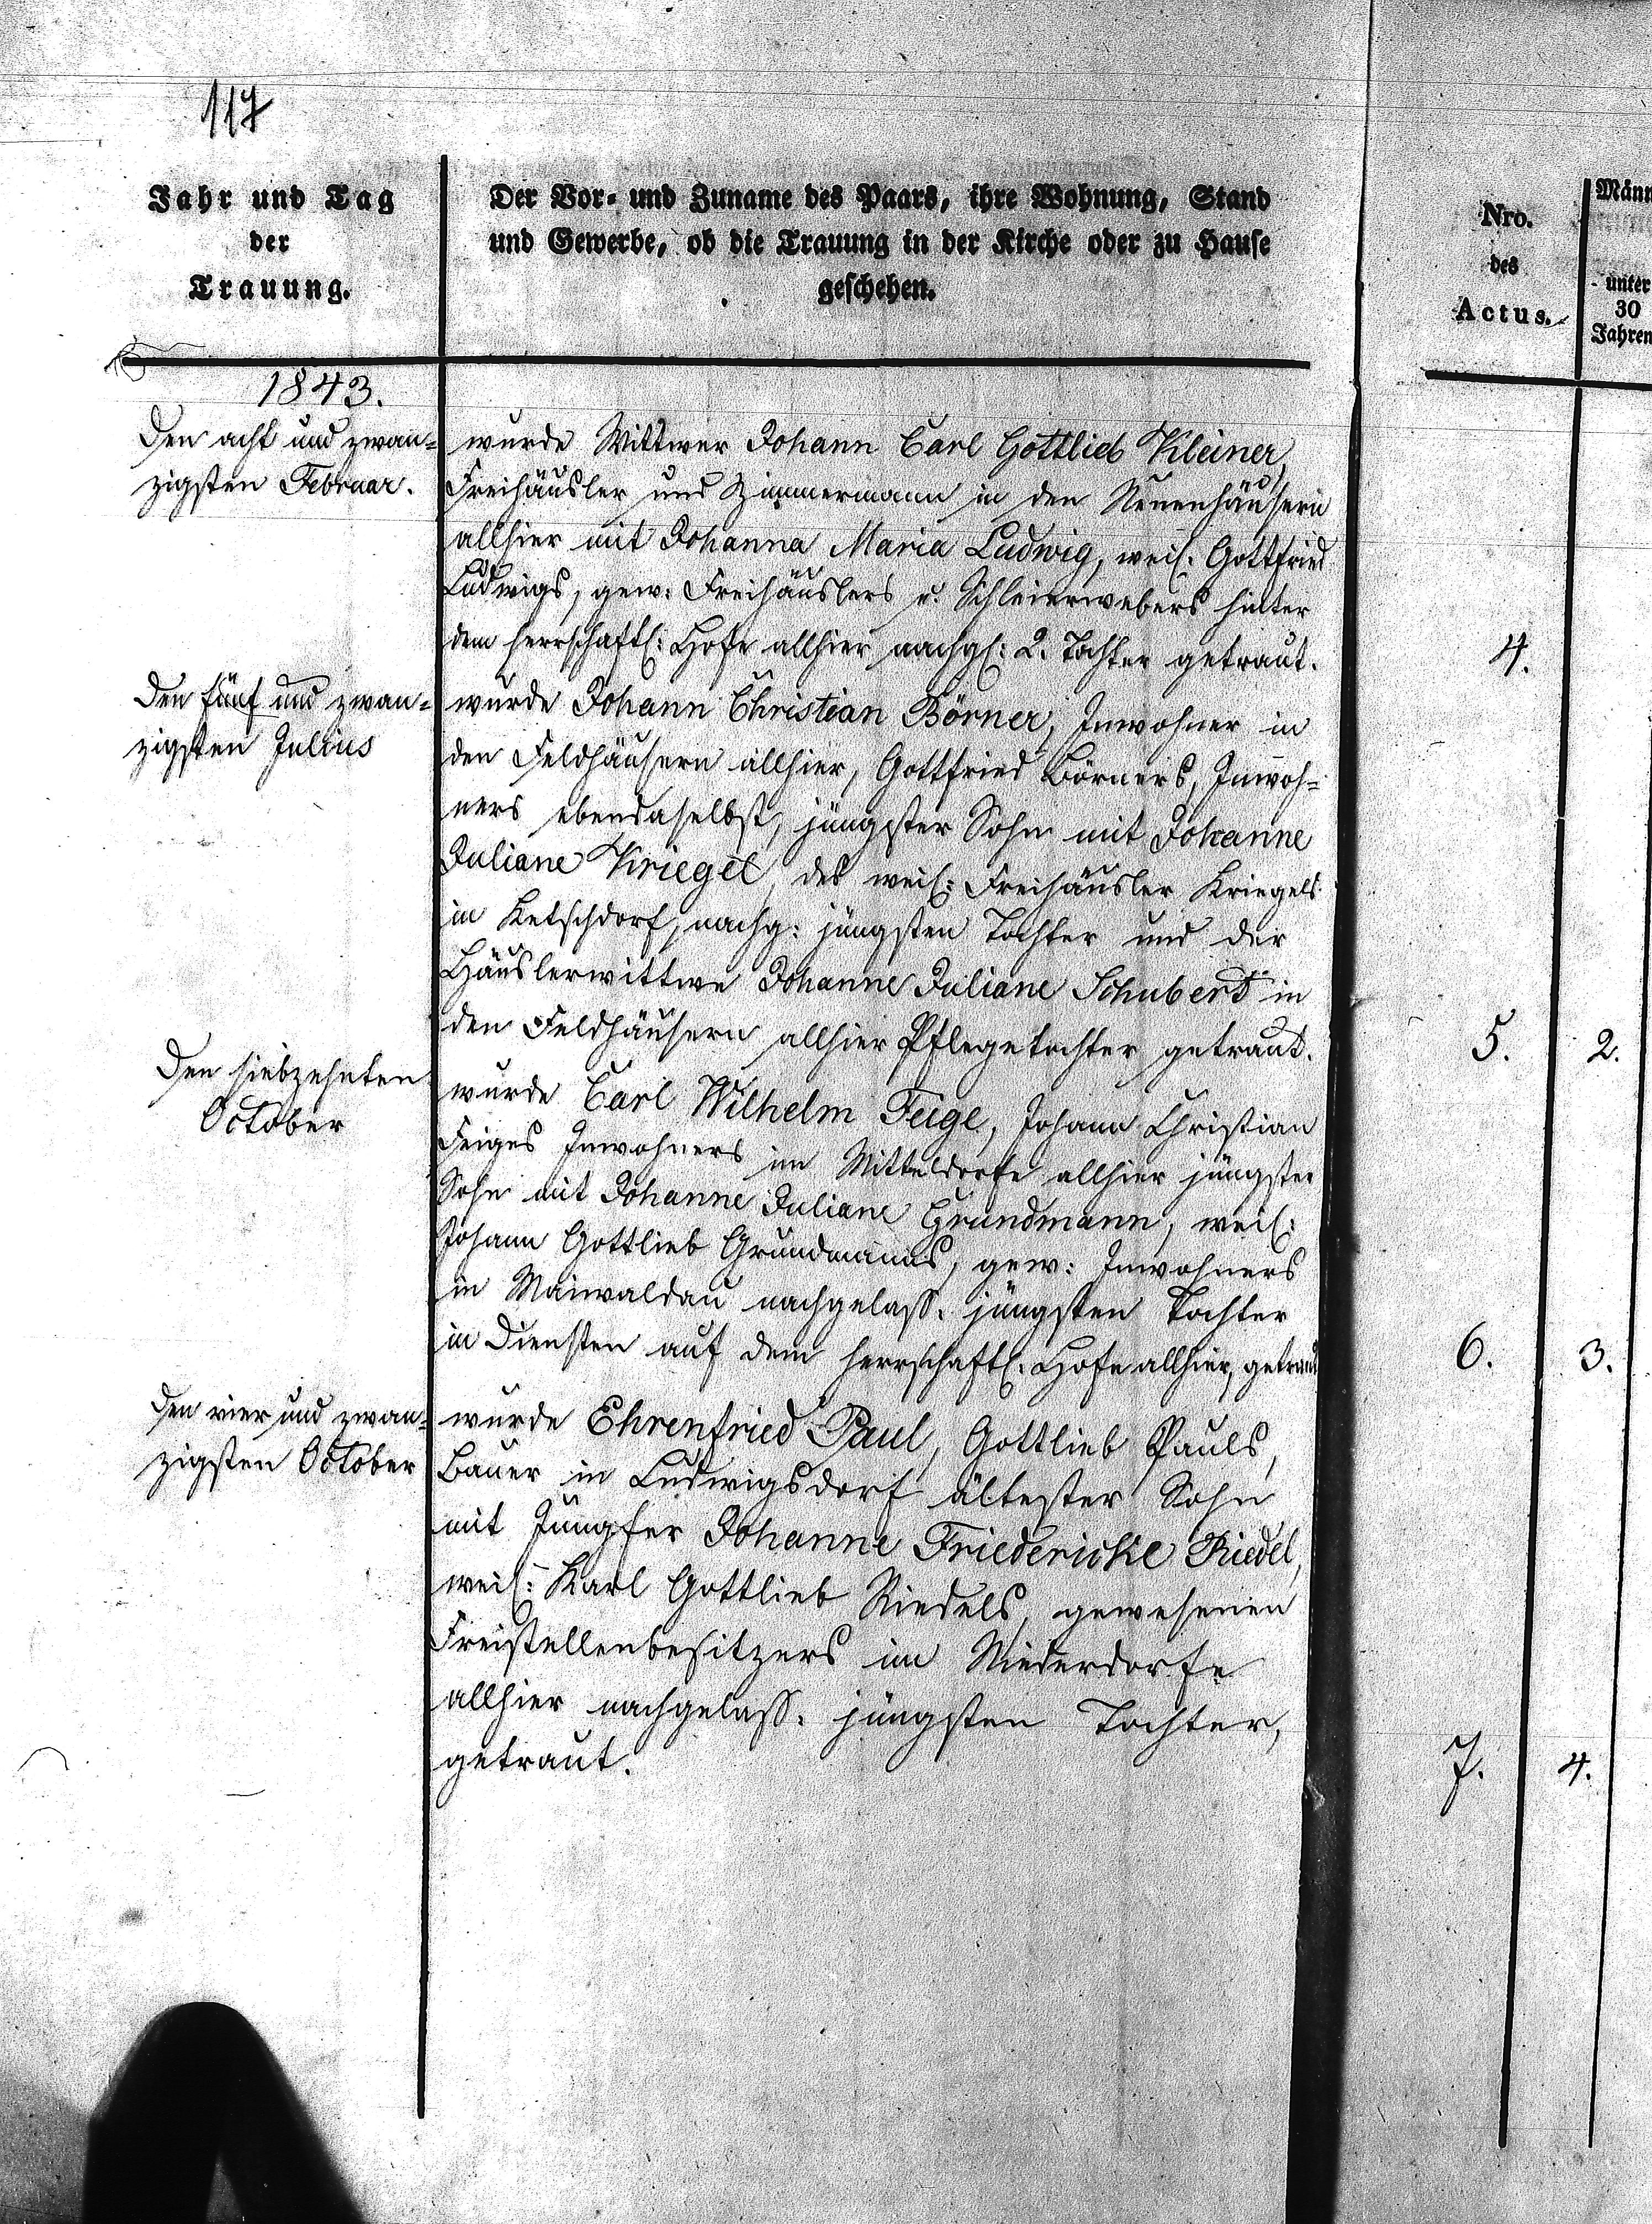 117
Jahr und Tag
der
Trauung.
Der Vor- und Zuname des Paars, ihre Wohnung, Stand
und Gewerbe, ob die Trauung in der Kirche oder zu Hause
geschehen.
Nro.
des
Actus.
Männ
unter
30
Jahren
1843.
Den acht und zwan-
zigsten Februar.
wurde Wittwer Johann Carl Gottlieb Kleiner,
Freihäusler und Zimmermann in den Neuenhäusern
allhier mit Johanna Maria Ludwig, weil: Gottfried
Ludwigs, gew: Freihäuslers u. Schleierwebers hinter
dem herrschaftl: Hofe allhier nachgl: 2. Tochter getraut.
4.
Den fünf und zwan-
zigsten Julius
wurde Johann Christian Börner, Inwohner in
den Feldhäusern allhier, Gottfried Börners, Inwoh-
ners ebendaselbst, jüngster Sohn mit Johanne
Juliane Kriegel, des weil: Freihäusler Kriegels
in Ketschdorf, nachg: jüngsten Tochter und der
Häuslerwittwe Johanne Juliane Schubert in
den Feldhäusern allhier Pflegetochter getraut.
5. 2.
Den siebzehnten
October
wurde Carl Wilhelm Feige, Johann Christian
Feiges Inwohners im Mitteldorfe allhier jüngster
Sohn mit Johanne Juliane Grundmann, weil:
Johann Gottlieb Grundmanns, gew: Inwohners
in Maiwaldau nachgelass: jüngsten Tochter
in Diensten auf dem herrschaftl: Hofe allhier, getraut
6. 3.
Den vier und zwan-
zigsten October
wurde Ehrenfried Paul, Gottlieb Pauls,
Bauer in Ludwigsdorf ältester Sohn
mit Jungfer Johanne Friedericke Riedel,
weil: Karl Gottlieb Riedels, gewesenen
Freistellenbesitzers im Niederdorfe
allhier nachgelass: jüngsten Tochter,
getraut.
7. 4.